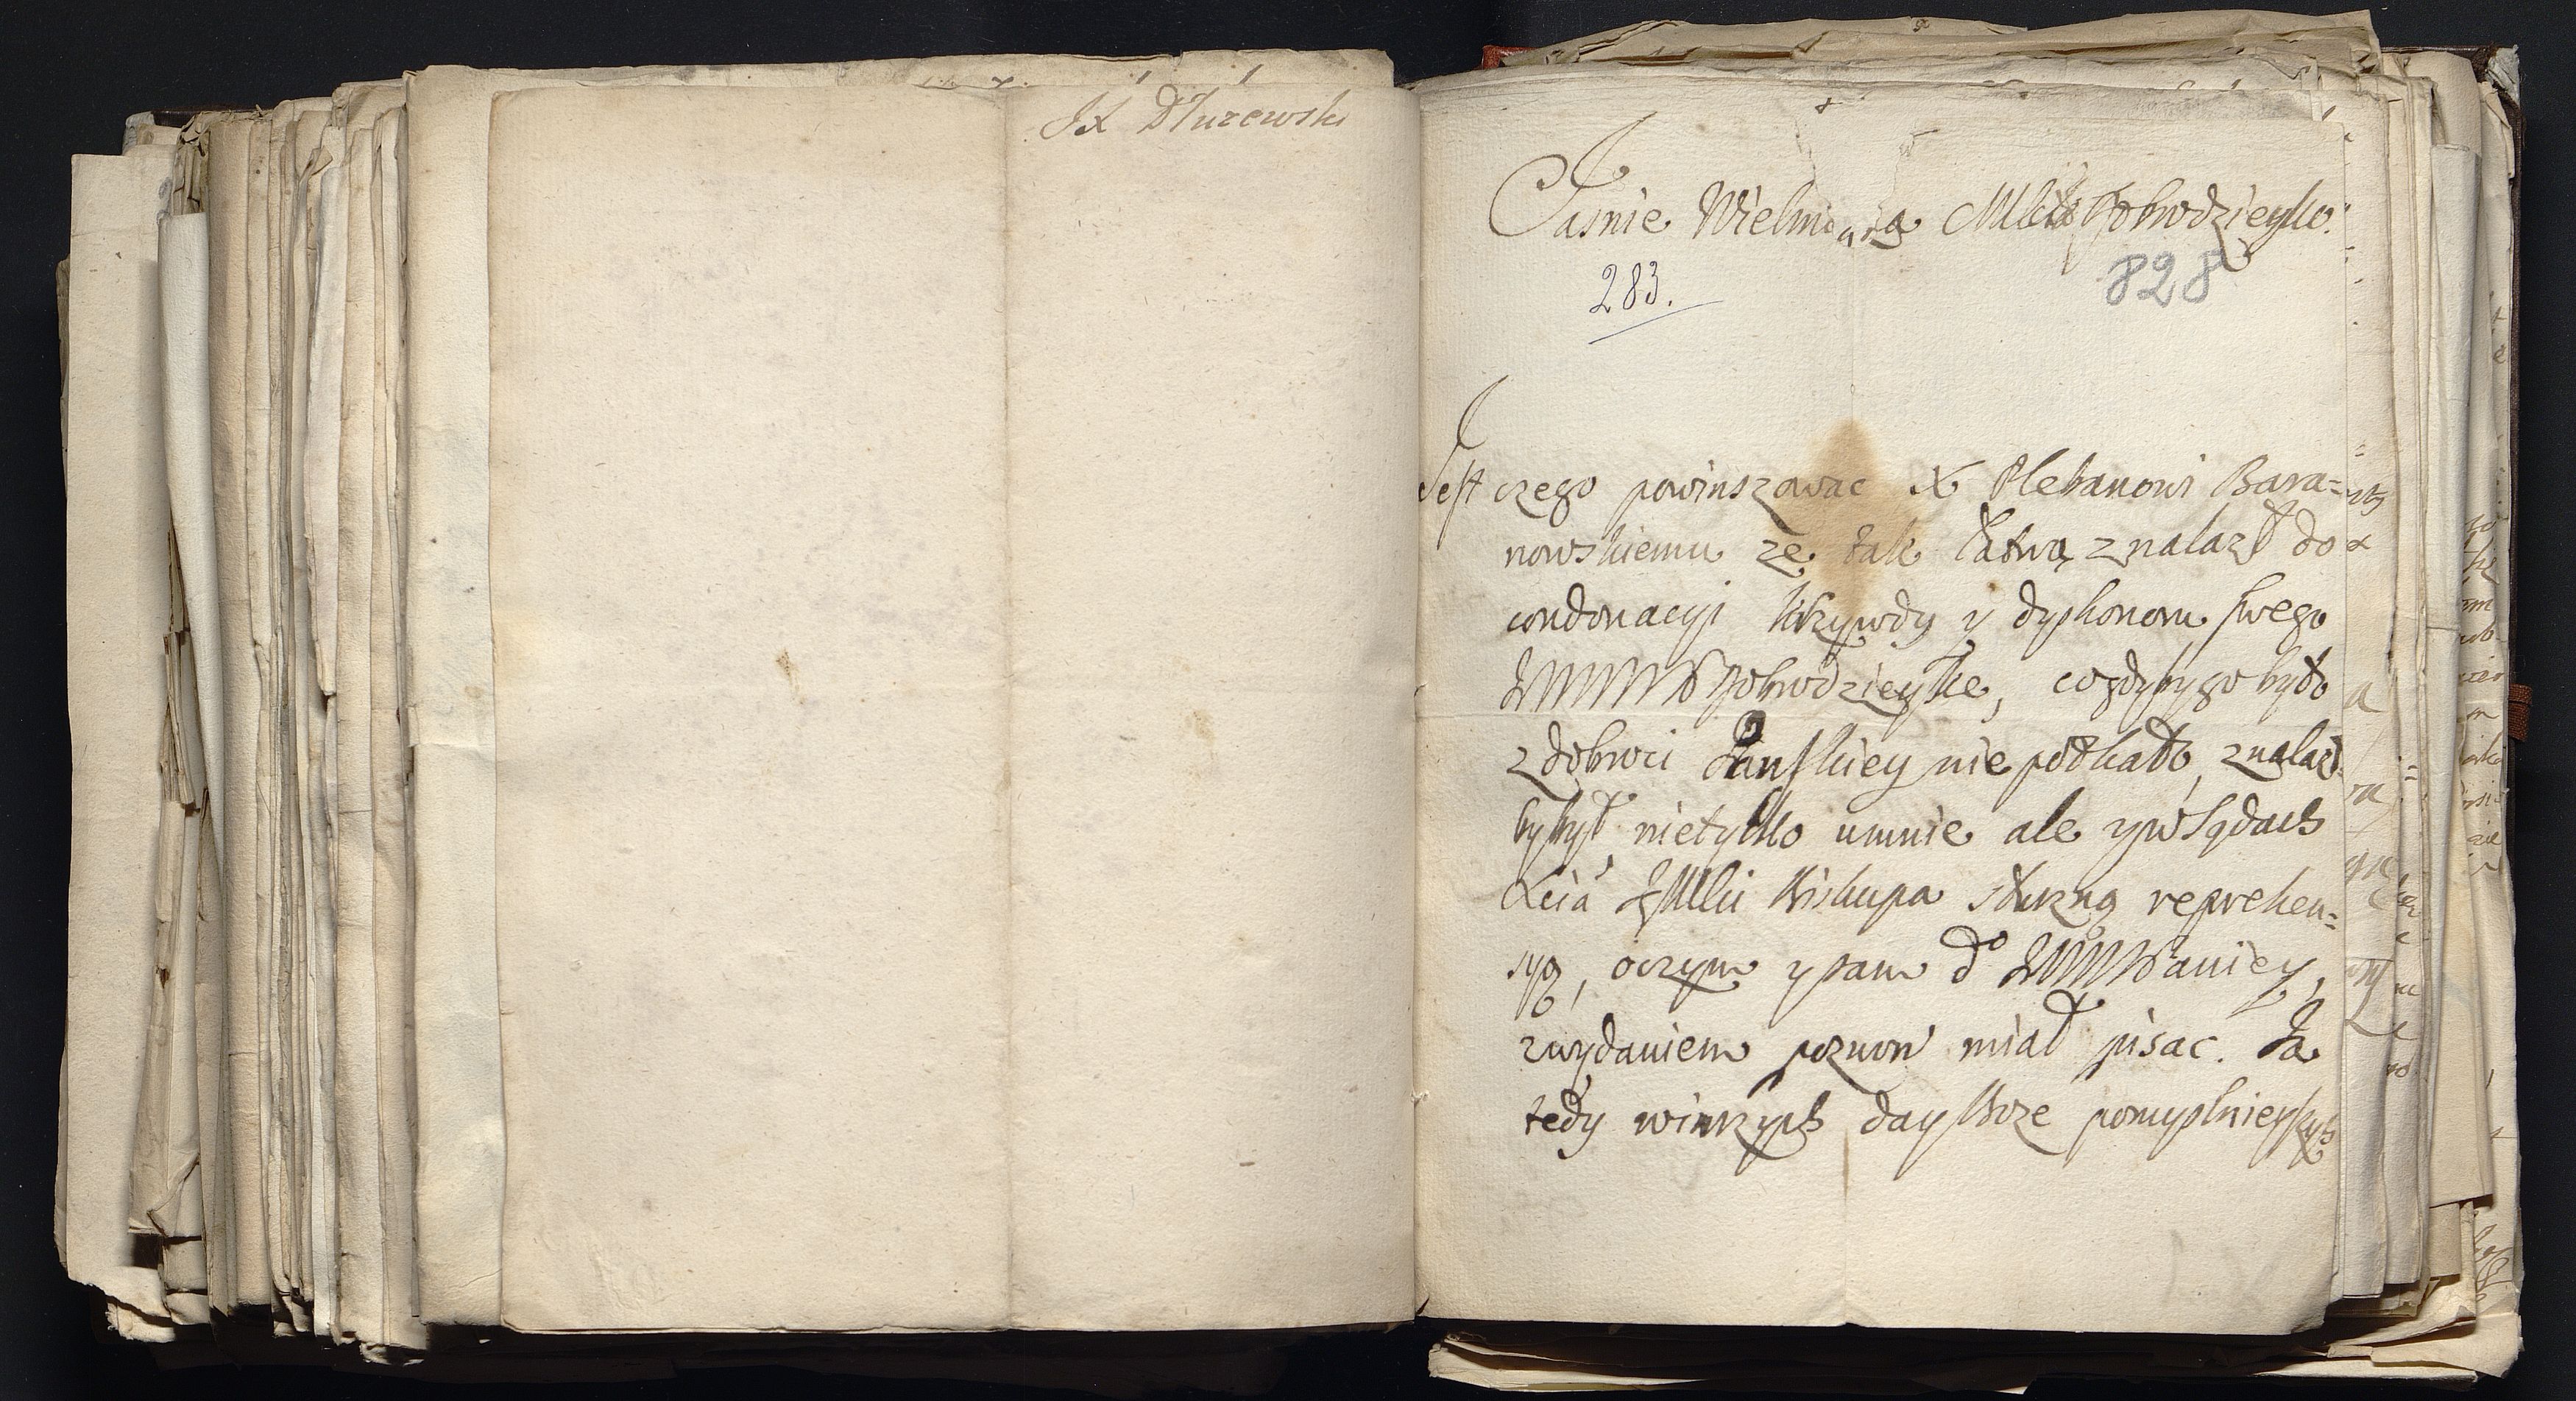 JX Dłuzewski
Jasnie Wielmozna Mscia Dobrodzieyko
283.
828
Jest czego powinszowac X Plebanowi Bara=
nowskiemu ze tak łatwą znalazł do
condonacyi krzywdy y dyshonoru swego
Dobrodzieykę, cogdyby go było
z dobroci Panskiey nie potkało, znalazł
by był nietylko umnie ale y w Sądach
Xcia JMsci Biskupa słuzną reprehen=
syą, oczym y sam do JWMWPaniey,
zwydaniem pozwow miał pisac. Ja
tedy winszych day Boze pomyslnieyszych